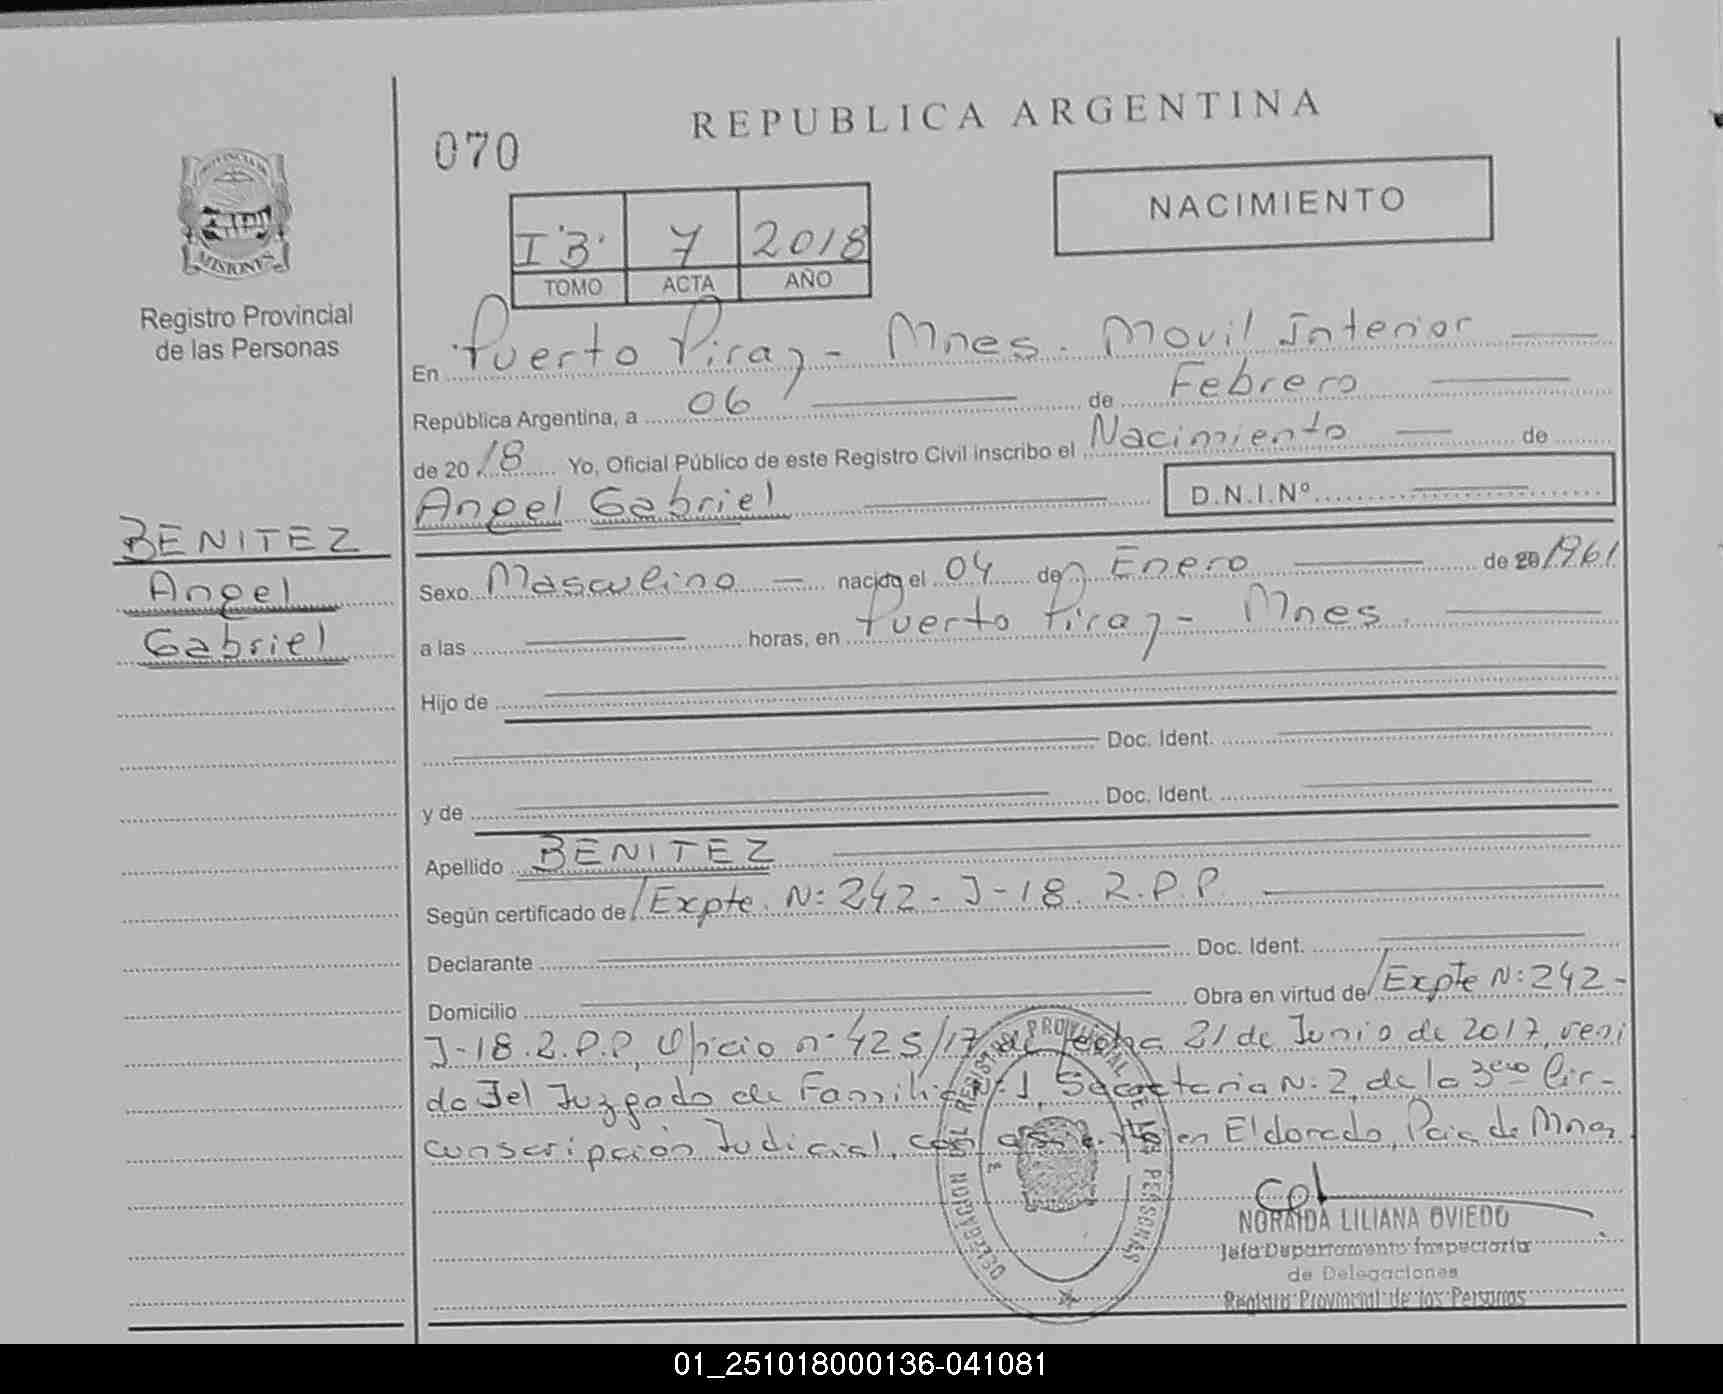 REPUBLICA ARGENTINA
070
NACIMIENTO
PROVINCIA DE
MISIONES
Registro Provincial
de las Personas
I "B" 7 2018
TOMO ACTA AÑO
En Puerto Piray - Mnes. Movil Interior
República Argentina, a 06 de Febrero
de 2018 Yo, Oficial Público de este Registro Civil inscribo el Nacimiento de
Angel Gabriel D.N.I.Nº
BENITEZ
Angel
Gabriel
Sexo Masculino nacido el 04 de Enero de 20 1961
a las horas, en Puerto Piray - Mnes.
Hijo de
Doc. Ident.
y de Doc. Ident.
Apellido BENITEZ
Según certificado de / Expte. N: 242 - J - 18. R.P.P.
Declarante Doc. Ident.
Domicilio Obra en virtud de / Expte N: 242 -
J-18.R.P.P, Oficio nº 425/17 de fecha 21 de Junio de 2017, veni
do del Juzgado de Familia Nº 1, Secretaria N: 2, de la 3era Cir-
cunscripción Judicial, con asiento en Eldorado, Pcia de Mnes
DELEGACION DEL REGISTRO PROVINCIAL DE LAS PERSONAS
NORAIDA LILIANA OVIEDO
Jefa Departamento Inspectoria
de Delegaciones
Registro Provincial de las Personas
01_251018000136-041081